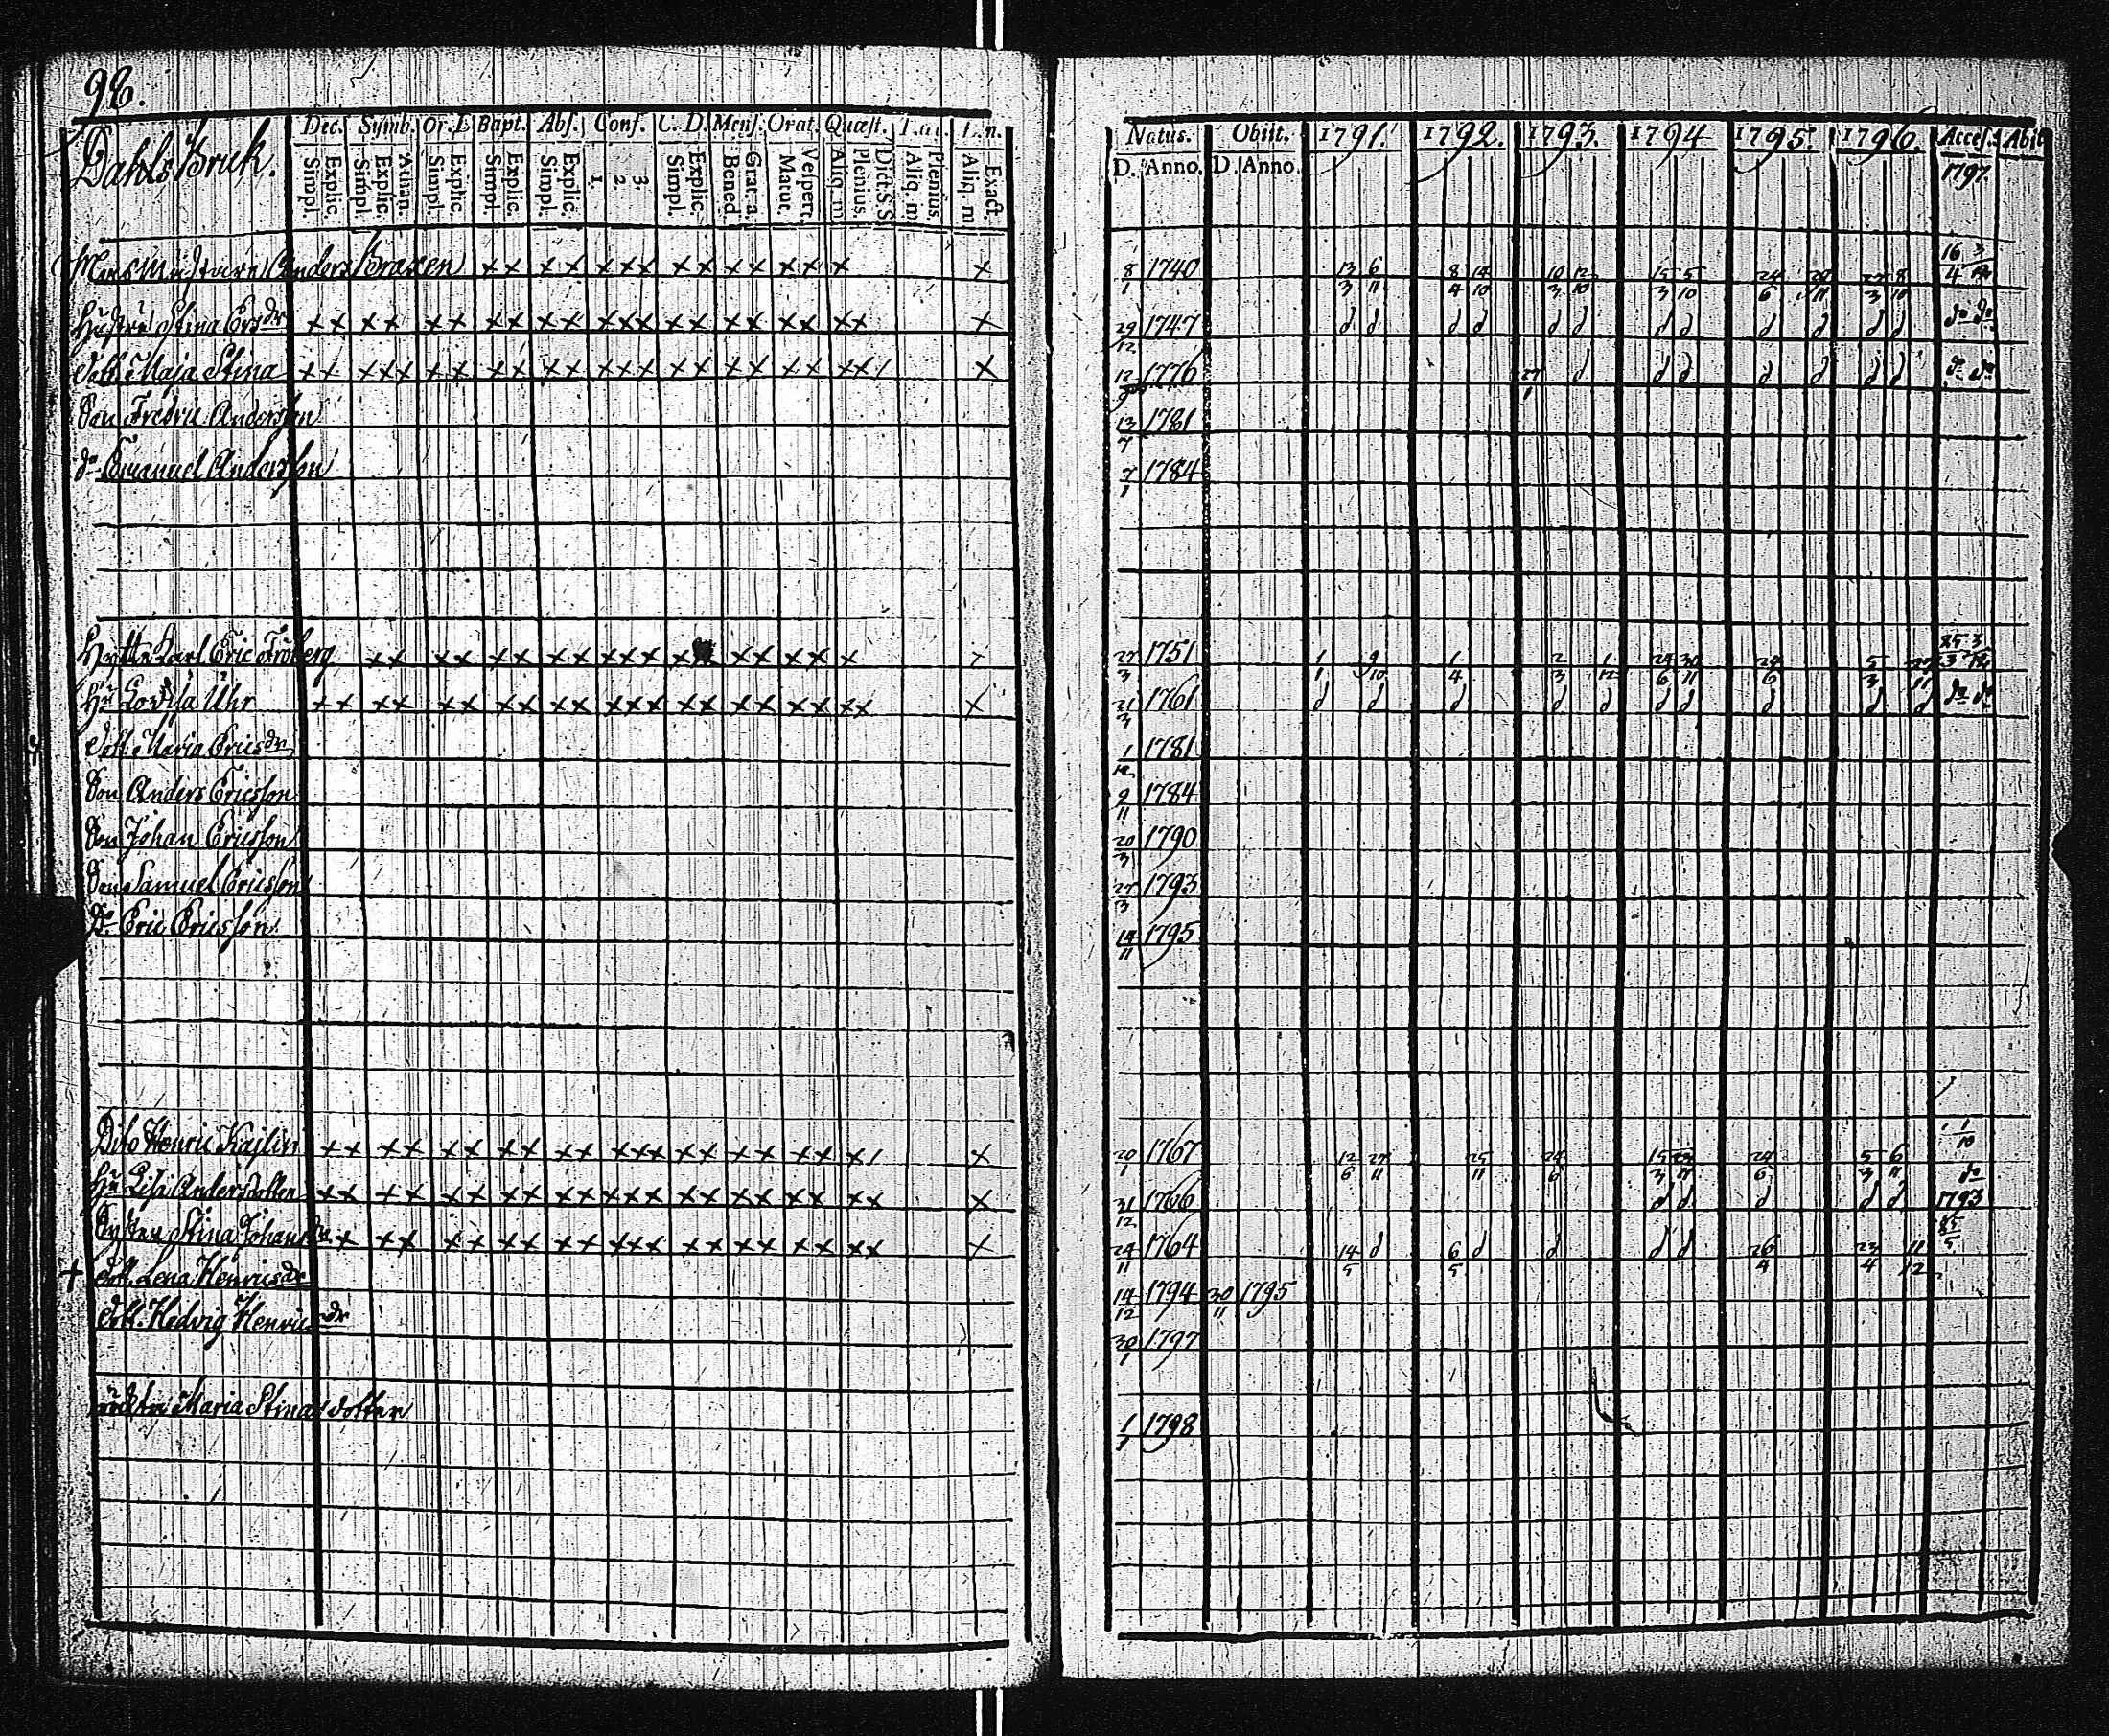 98.
Dahls Bruk.
Dec. Symb. Or. D Bapt. Abs. Conf. C. D. Mens. Orat. Quæst.
Simpl. Explic. Simpl. Explic. Athan. Simpl. Explic. Simpl. Explic. Simpl. Explic. 1. 2. 3. Simpl. Explic. Bened. Grat. a. Matur. Vesper. Aliq. m Plenius. Dict. S. S Aliq. m Plenius. Aliq. m Exact.
Natus. Obiit. 1791. 1792. 1793. 1794 1795. 1796. Acces. Abit
D. Anno. D. Anno. 1797.
Anders Braxen x x x x x x x x x x x x x x x 8/1 1740 13/3 6/11 8/4 14/10 10/3 12/10 15/3 5/10 24/6 3/3 8/10 16/4 3
Hustru Stina Ers dr x x x x x x x x x x x x x x x x x x x x x x 29/12 1747 d d d d d d d d d d d d do do
Dott. Maja Stina x x x x x x x x x x x x x x x x x x x x x x / x 12/9 1776 27/1 d d d d d d d do do
Son Fredric Andersson 13/7 1781
do Emanuel Andersson 7/1 1784
Carl Eric x x x x x x x x x x x x x x x x x x 27/3 1751 1/1 9/10 1/4 2/3 1/12 29/6 30/11 24/6 5/3 27/11 25/3 3
Hu Lovisa Uhr x x x x x x x x x x x x x x x x x x x x x x 21/3 1761 d d d d d d d d d d do do
Dott. Maria Erics dr 1/12 1781
Son Anders Ericsson 9/11 1784
Son Johan Ericsson 20/3 1790
Son Samuel Ericsson 27/3 1793
Do Eric Ericsson 14/11 1795
Dito Henric Kajlin x x x x x x x x x x x x x x x x x x x x / x 20/1 1767 12/6 27/11 25/11 24/6 15/3 24/6 5/3 6/11 1/10
Hu Lisa Andersdotter x x x x x x x x x x x x x x x x x x x x x x 31/12 1766 d d d d d do 1793
Syster Stina Johans dr x x x x x x x x x x x x x x x x x x x x x 24/11 1764 14/5 d 6/5 d d d d 26/4 23/4 11/12 25/5
+ Dott. Lena Henrics dr 14/12 1794 30/11 1795
Dott. Hedvig Henrics dr 30/1 1797
Maria Stina dotter 1798